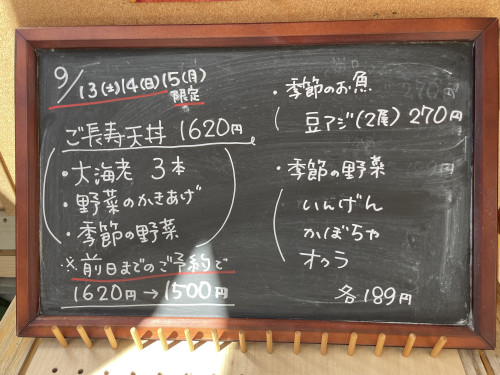 9/13(土)14(日)15(月)
限定
ご長寿天丼 1620円
・大海老 3本
・野菜のかきあげ
・季節の野菜
※前日までのご予約で
1620円→1500円
・季節のお魚
豆アジ(2尾) 270円
・季節の野菜
いんげん
かぼちゃ
オクラ
各189円